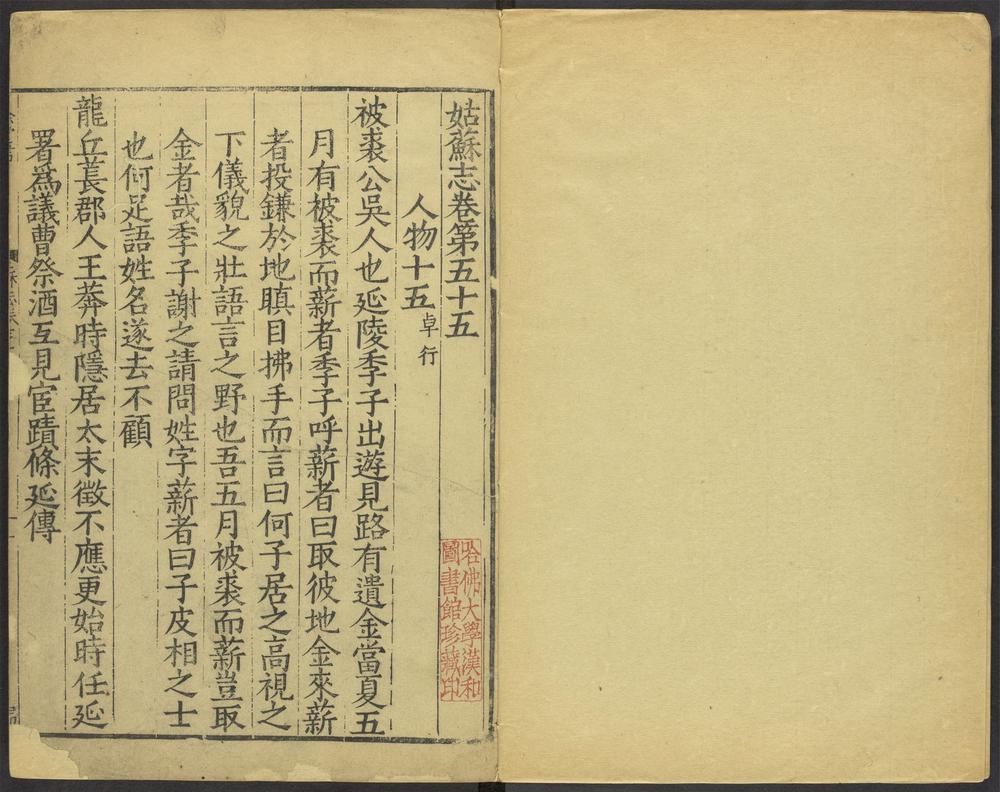 姑蘇志卷第五十五
人物十五 卓行
被裘公吳人也延陵季子出遊見路有遺金當夏五
月有被裘而薪者季子呼薪者曰取彼地金來薪
者投鎌於地瞋目拂手而言曰何子居之高視之
下儀貌之壯語言之野也吾五月被裘而薪豈取
金者哉季子謝之請問姓字薪者曰子皮相之士
也何足語姓名遂去不顧
龍丘萇郡人王莽時隱居太末徵不應更始時任延
署爲議曹祭酒互見宦蹟條延傳
哈佛大學漢和
圖書館珍藏印